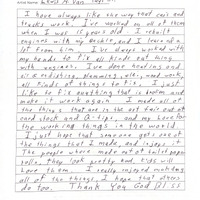 Artist Name: Lewis A. Van
I have always like the way that cars and
trucks work. I've worked on all of them
when I was 15 years old. I rebuilt
engines with my uncle, and I learned a
lot from him. I've always worked with
my hands to fix all kinds of thing
with engines. I've done heating and
air & rodishing, plumbing, elec, wood work,
all kinds of things to fix. I just
like to fix anything that is broken and
make it work again. I made all of
the things that are in the art fair out of
card stock and Q-tips, and my love for
the working things in the world.
I just hope that someone gets one of
the things that I made, and injoys it.
The people where made out of toilet paper
rolls, they look pretty and kids will
Love them. I really injoyed making
all of the things, I hope that others
do too. Thank you God Bless